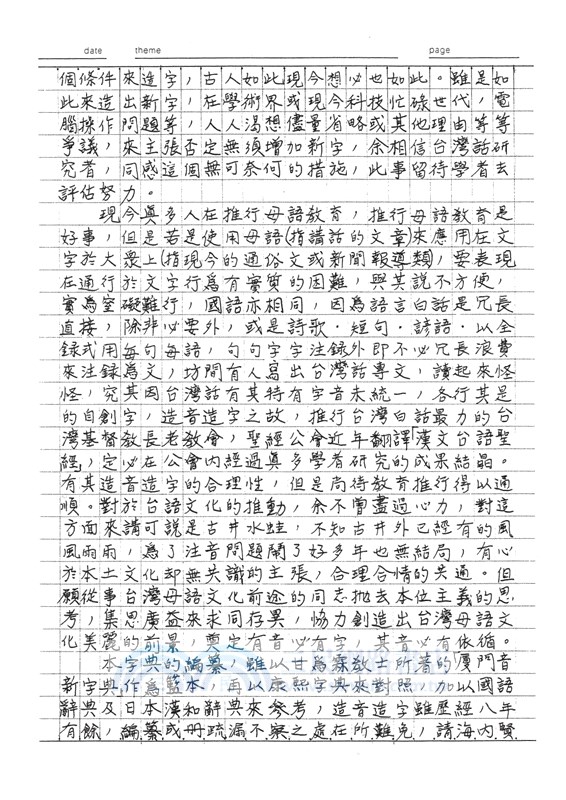 date theme page
個條件來造字，古人如此現今想必也如此。雖是如
此來造出新字，在學術界或現今科技忙碌世代，電
腦操作問題等，人人渴想儘量省略或其他理由等等
爭議，來主張否定無須增加新字，余相信台灣話研
究者，同感這個無可奈何的措施，此事留待學者去
評估努力。
現今眞多人在推行母語教育，推行母語教育是
好事，但是若是使用母語(指講話的文章)來應用在文
字於大衆上(指現今的通俗文或新聞報導類)，要表現
在通行於文字行爲有實質的困難，與其說不方便，
實爲窒礙難行，國語亦相同，因爲語言白話是冗長
直接，除非必要外，或是詩歌·短句·諺語·以全
録式用每句每語，句句字字注録外即不必冗長浪費
來注録爲文，坊間有人寫出台灣話專文，讀起來怪
怪，究其因台灣話有其特有字音未統一，各行其是
的自創字，造音造字之故，推行台灣白話最力的台
灣基督教長老教會，聖經公會近年翻譯「漢文台語聖
經」，定必在公會內經過眞多學者研究的成果結晶。
有其造音造字的合理性，但是尚待教育推行得以通
順。對於台語文化的推動，余不曾盡過心力，對這
方面來講可說是古井水蛙，不知古井外已經有的風
風雨雨，爲了注音問題鬧了好多年也無結局，有心
於本土文化却無共識的主張，合理合情的共通。但
願從事台灣母語文化前途的同志抛去本位主義的思
考，集思廣益來求同存異，恊力創造出台灣母語文
化美麗的前景，奠定有音必有字，其音必有依循。
本字典的編纂，雖以甘爲霖敎士所著的「厦門音
新字典」作爲藍本，再以康熙字典來對照，加以國語
辭典及日本漢和辭典來參考，造音造字雖歷經八年
有餘，編纂或毋疏漏不察之處在所難免，請海內賢